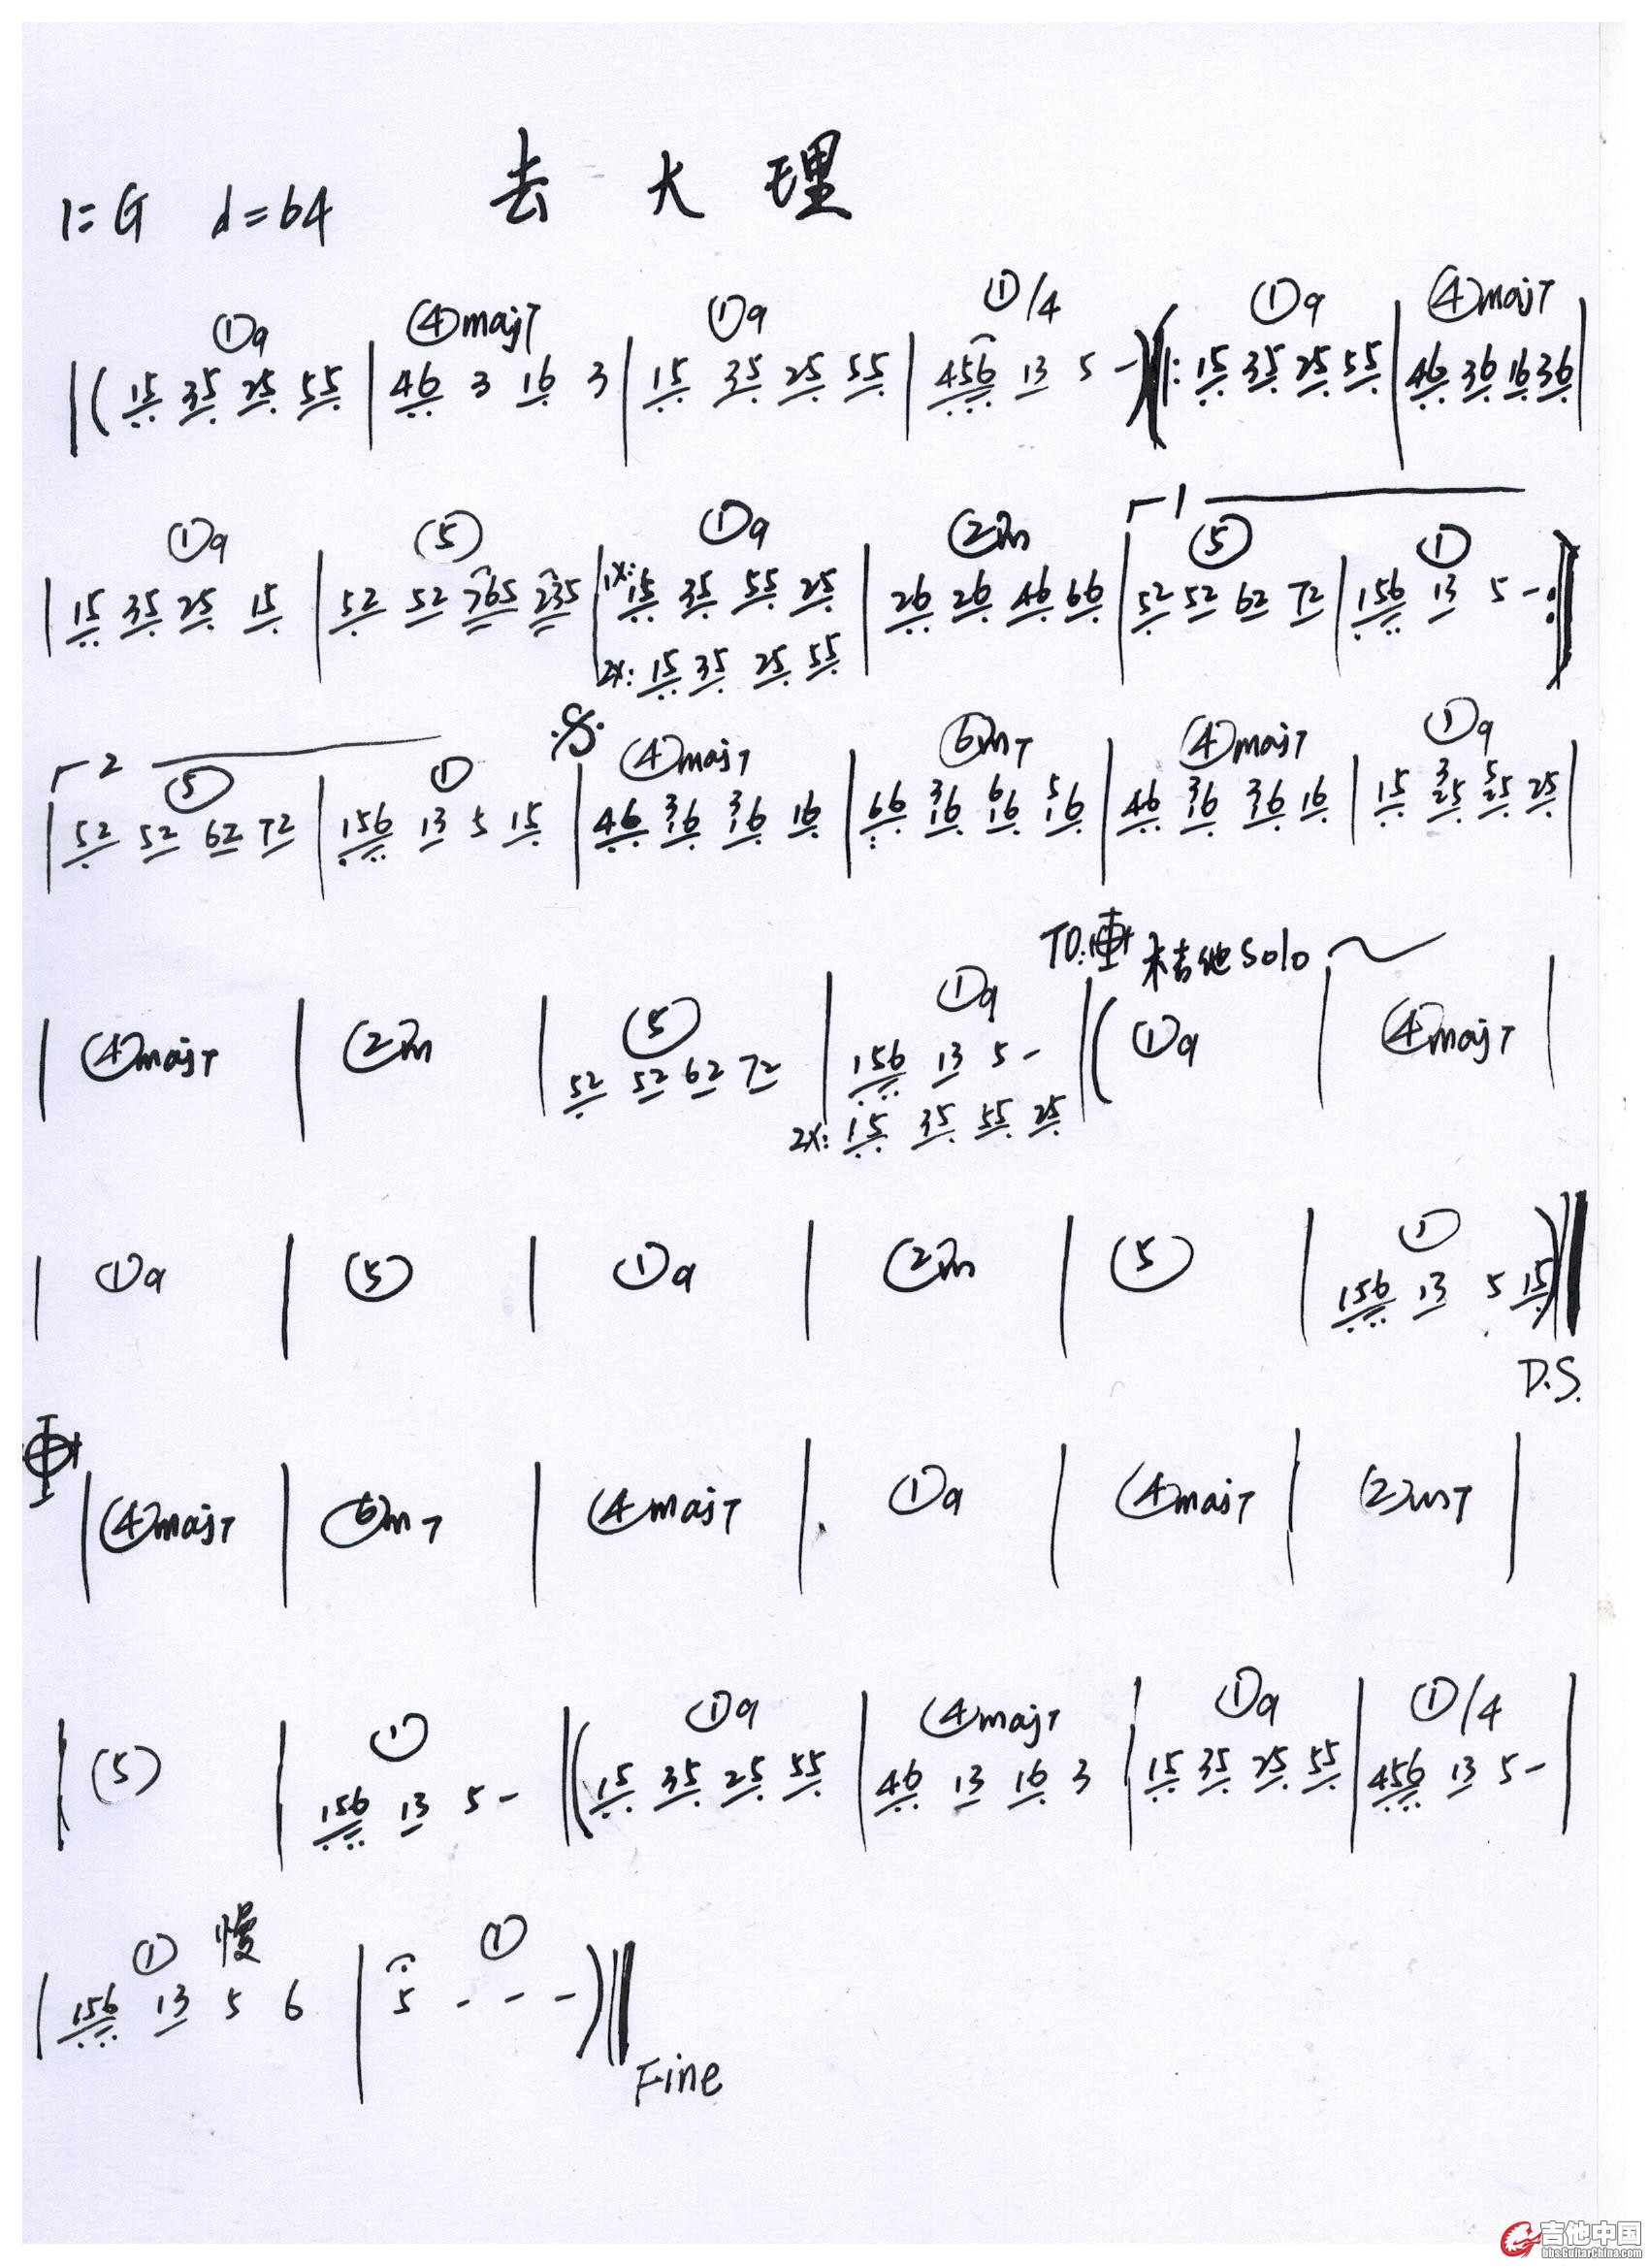 去大理
1=G ♩=64
①9 ④maj7 ①9 ①/4 ①9 ④maj7
|( 15 35 25 55 | 46 3 16 3 | 15 35 25 55 | 456 13 5 - )‖: 15 35 25 55 | 46 36 16 36 |
┌1
①9 ⑤ ①9 ②m ⑤ ①
| 15 35 25 15 | 52 52 765 235 | 1X: 15 35 55 25 | 26 26 46 66 | 52 52 62 72 | 156 13 5 - :‖
2X: 15 35 25 55
┌2 𝄋
⑤ ① ④maj7 ⑥m7 ④maj7 ①9
| 52 52 62 72 | 156 13 5 15 | 46 36 36 16 | 66 36 66 56 | 46 36 36 16 | 15 35 55 25 |
TO: 𝄌 木吉他Solo ~
| ④maj7 | ②m | ⑤ | ①9 ‖( ①9 | ④maj7 |
52 52 62 72 | 156 13 5 -
2X: 15 35 55 25
| ①9 | ⑤ | ①9 | ②m | ⑤ | ①
156 13 5 15 )‖
D.S.
𝄌
| ④maj7 | ⑥m7 | ④maj7 | ①9 | ④maj7 | ②m7 |
① ①9 ④maj7 ①9 ①/4
| ⑤ | 156 13 5 - ‖( 15 35 25 55 | 46 13 16 3 | 15 35 25 55 | 456 13 5 - |
① 慢 ①
| 156 13 5 6 | 5 - - - )‖
Fine
吉他中国
bbs.GuitarChina.com